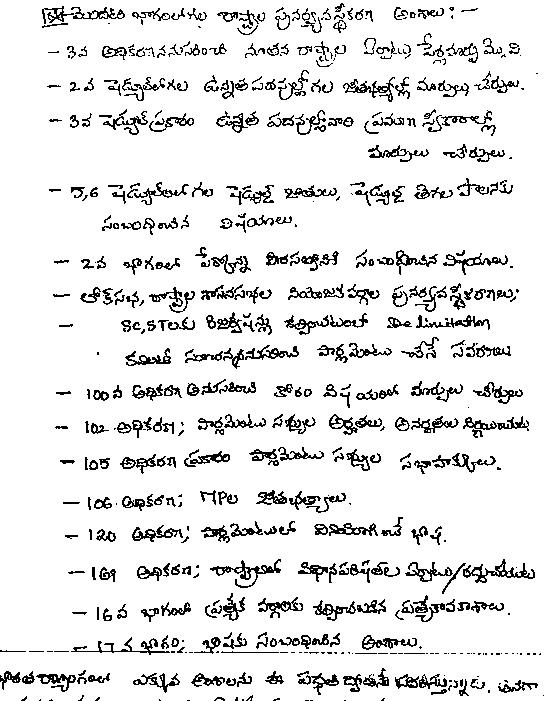 మొదటి భాగంలోగల రాష్ట్రాల పునర్వ్యవస్థీకరణ అంశాలు : -
- 3వ అధికరణననుసరించి నూతన రాష్ట్రాల ఏర్పాటు, పేర్లమార్పు
- 2వ షెడ్యూల్‌లోగల ఉన్నత పదవుల్లోగల జీతభత్యాల్లో మార్పులు, చేర్పులు.
- 3వ షెడ్యూల్ ప్రకారం ఉన్నత పదవుల్లోవారి ప్రమాణ స్వీకారాల్లో
మార్పులు చేర్పులు.
- 5,6 షెడ్యూల్‌లలో గల షెడ్యూల్డ్ జాతులు, షెడ్యూల్డ్ తెగల పాలనకు
సంబంధించిన విషయాలు.
- 2వ భాగంలో పేర్కొన్న పౌరసత్వానికి సంబంధించిన విషయాలు.
- లోక్‌సభ, రాష్ట్రాల శాసనసభల నియోజకవర్గాల పునర్వ్యవస్థీకరణలు;
- SC,STలకు రిజర్వేషన్లు కల్పించటంలో Delimitation
కమిటీ సూచనలననుసరించి పార్లమెంటు చేసే సవరణలు
- 100వ అధికరణ అనుసరించి కోరం విషయంలో మార్పులు చేర్పులు
- 102 అధికరణ; పార్లమెంటు సభ్యుల అర్హతలు, అనర్హతలు నిర్ణయించుట
- 105 అధికరణ ప్రకారం పార్లమెంటు సభ్యుల సభాహక్కులు.
- 106 అధికరణ; MPల జీతభత్యాలు.
- 120 అధికరణ; పార్లమెంటులో వినియోగించే భాష.
- 169 అధికరణ; రాష్ట్రాలలో విధానపరిషత్‌ల ఏర్పాటు/రద్దుచేయుట
- 16వ భాగంలో ప్రత్యేక వర్గాలకు కల్పించబడిన ప్రత్యేకావకాశాలు.
- 17వ భాగం; భాషకు సంబంధించిన అంశాలు.
భారత రాజ్యాంగంలో ఎక్కువ అంశాలను ఈ పద్ధతి ద్వారానే సవరిస్తున్నారు.